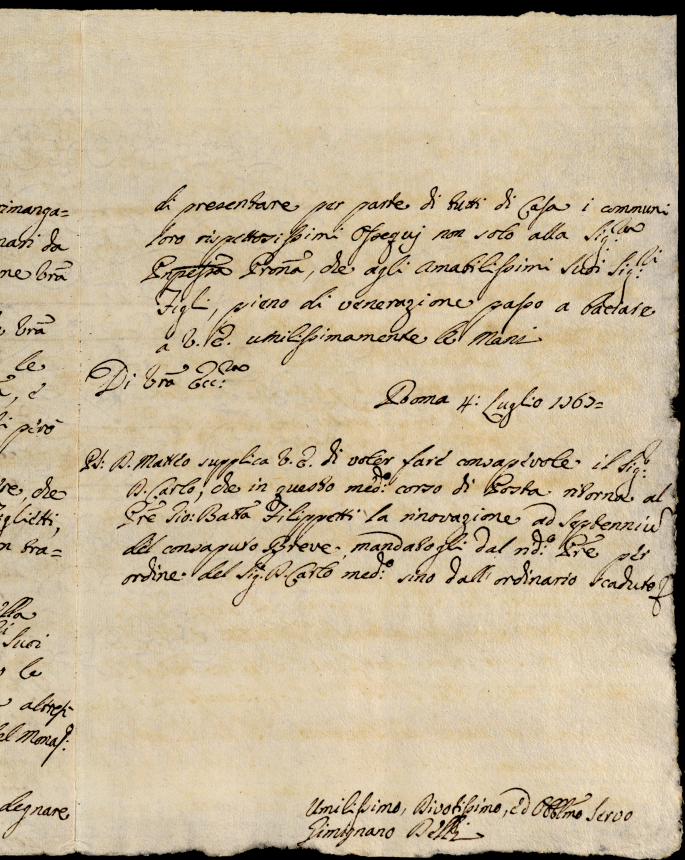 rimanga=
nari da
ne Vrã
Vrã
le
, è
i però
re, che
iglietti,
n tra=
lla
Suoi
le
altresì
al Monas:
degnare
di presentare per parte di tutti di Casa i communi
loro rispettosissimi Ossequj non solo alla Sig:ra
Pronã, che agli Amabilissimi Suoi Sig:ri
Figli, pieno di venerazione passo a baciare
a V. E. umilissimamente le Mani
Di Vrã Ecc:za
Roma 4: Luglio 1767=
PS: D. Matteo supplica V. E. di voler fare consapevole il Sig:r
D. Carlo, che in questo med:o corso di Posta ritorna al
Pre Gio: Batta Filippetti la rinovazione ad Septenniũ
del consaputo Breve, mandatogli dal nd:o Pre per
ordine del Sig: D. Carlo med:o sino dall' ordinario scaduto
Umilissimo, Divotissimo, ed Obblmo Servo
Gimignano Belli